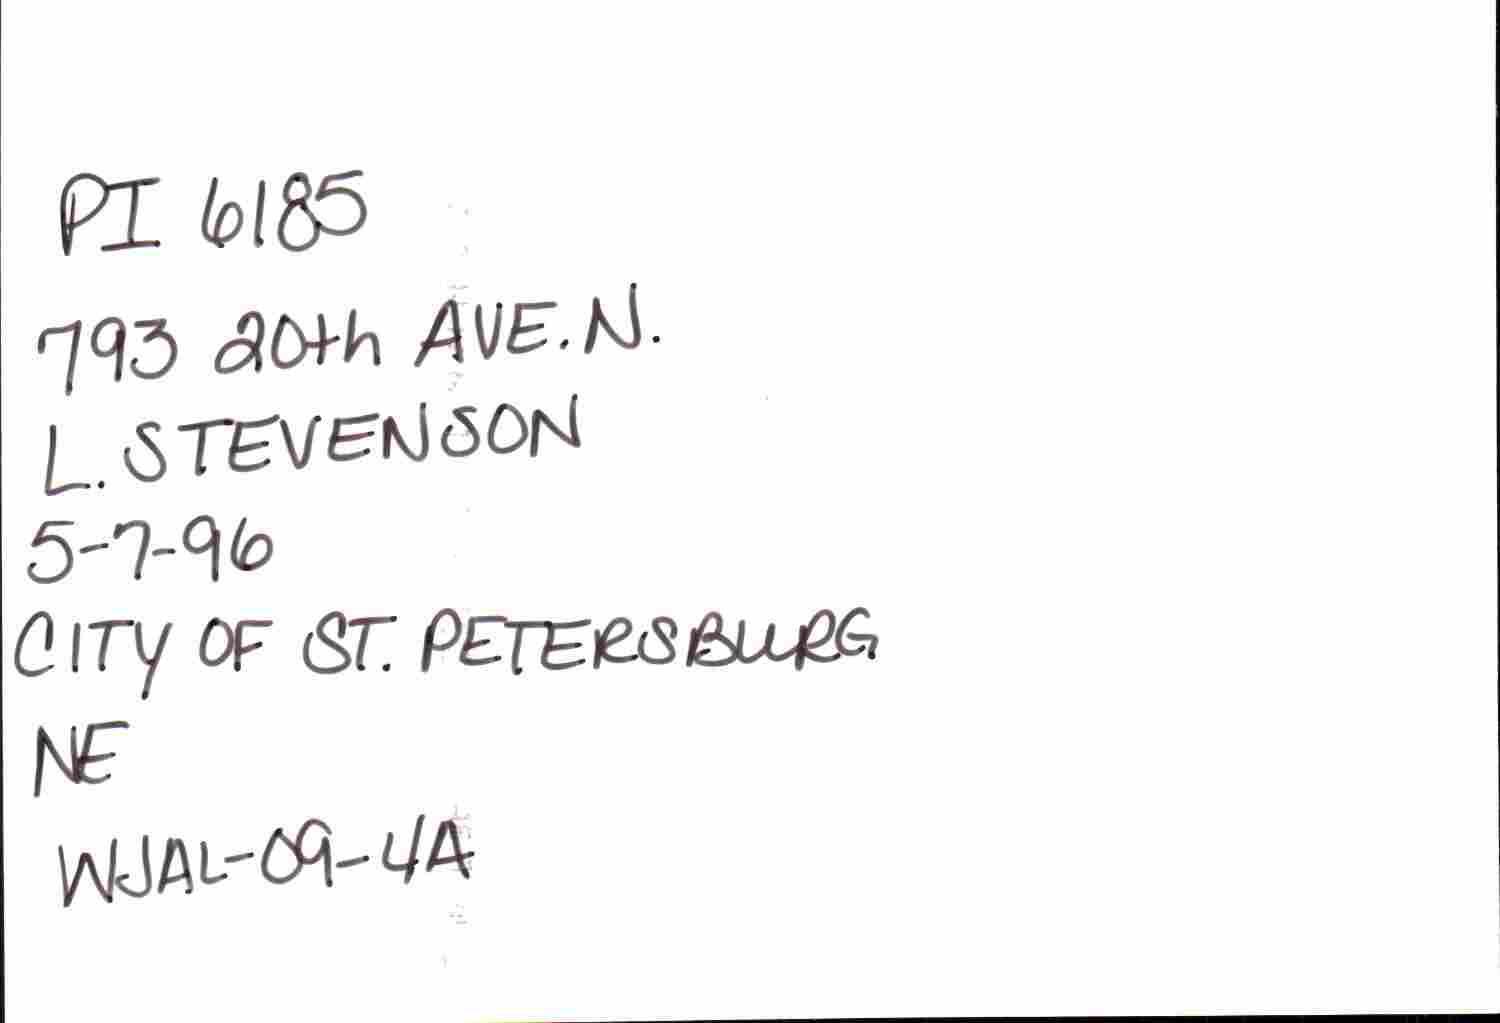 PI 6185
793 20th AVE. N.
L. STEVENSON
5-7-96
CITY OF ST. PETERSBURG
NE
WJAL-09-4A